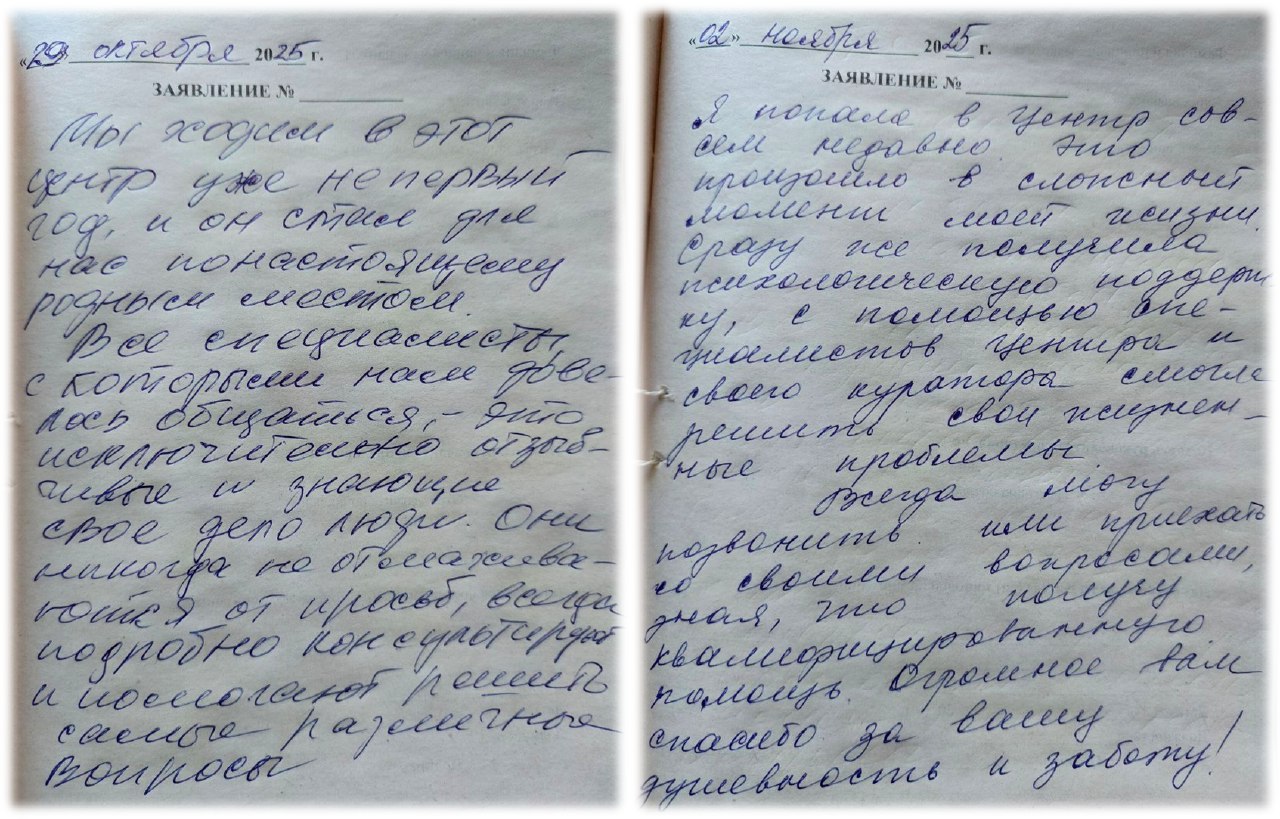 «29» октября 2025 г.
ЗАЯВЛЕНИЕ №
Мы ходим в этот
центр уже не первый
год, и он стал для
нас понастоящему
родным местом.
Все специалисты,
с которыми нам дове-
лось общаться, - это
исключительно отзыв-
чивые и знающие
свое дело люди. Они
никогда не отмахива-
ются от просьб, всегда
подробно консультируют
и помогают решить
самые различные
вопросы
«02» ноября 2025 г.
ЗАЯВЛЕНИЕ №
Я попала в центр сов-
сем недавно. Это
произошло в сложный
момент моей жизни.
Сразу же получила
психологическую поддерж
ку, с помощью спе-
циалистов центра и
своего куратора смогла
решить свои жизнен-
ные проблемы.
Всегда могу
позвонить или приехать
со своими вопросами,
зная, что получу
квалифицированную
помощь. Огромное вам
спасибо за вашу
душевность и заботу!